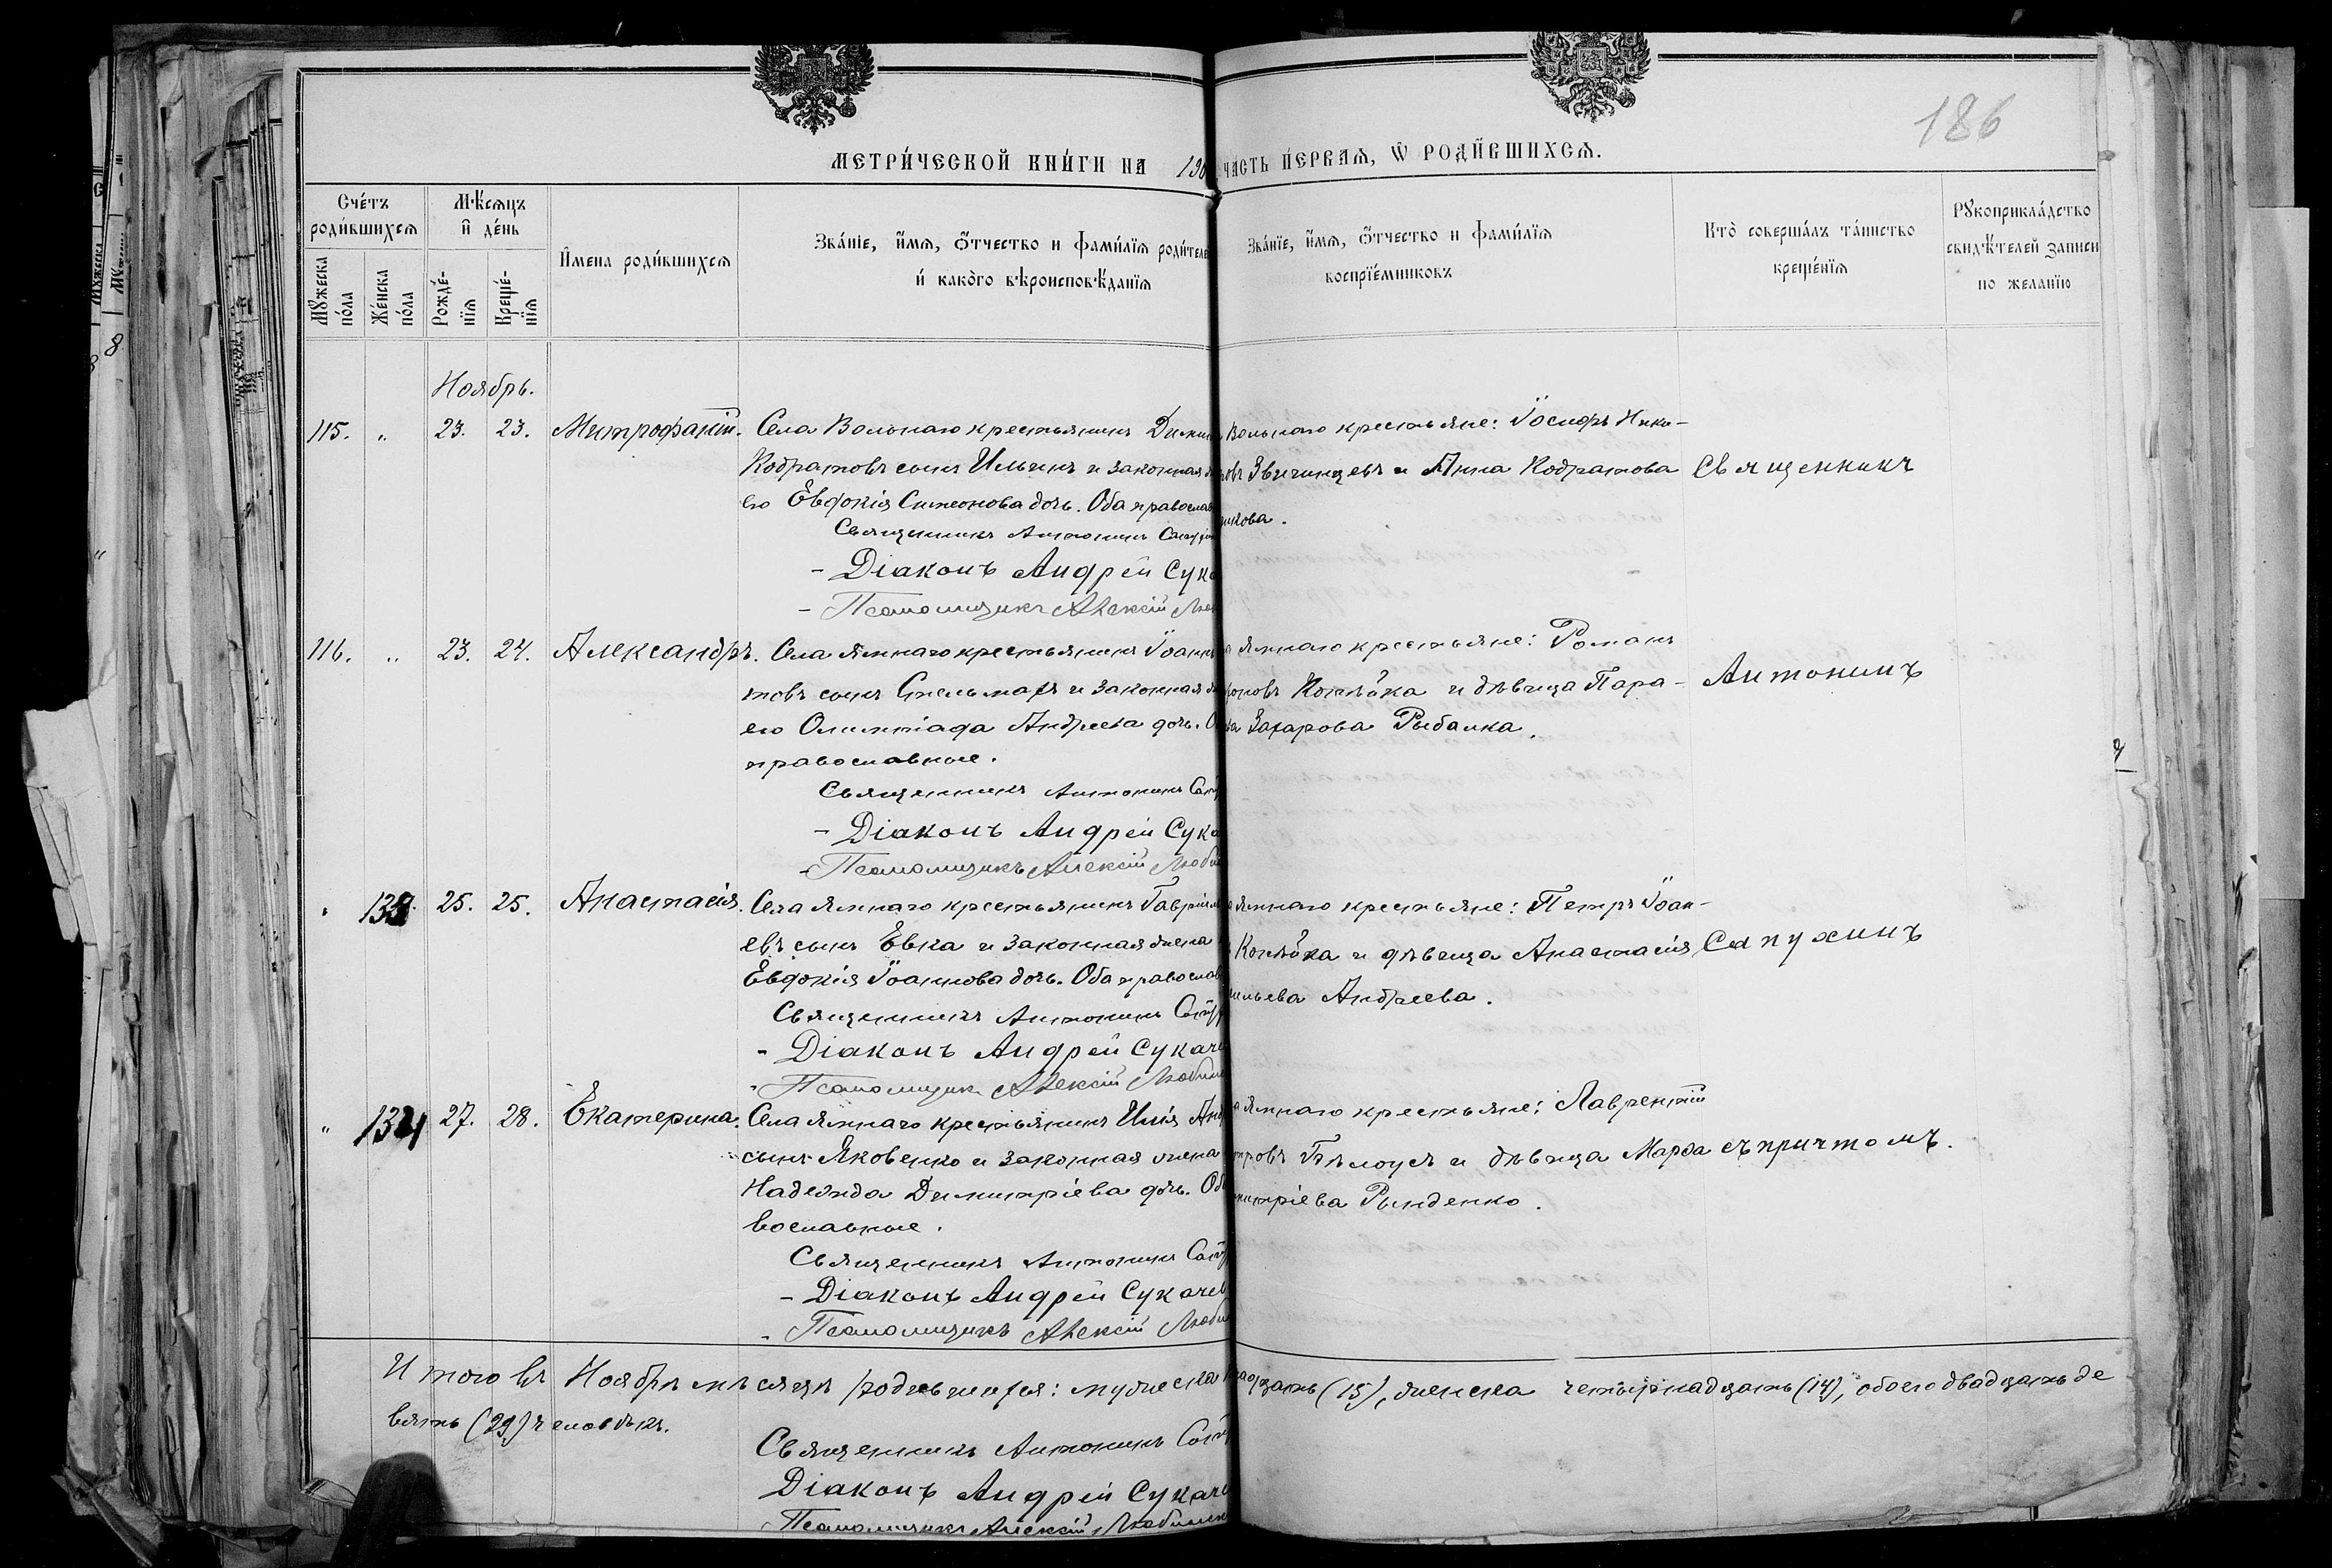 186
МЕТРИ́ЧЕСКОЙ КНИ́ГИ НА 190 ЧАСТЬ ПЕ́РВАЯ, Ѡ РОДИ́ВШИХСЯ.
Сче́тъ роди́вшихся
Мѣ́сяцъ и де́нь
Имена роди́вшихся
Зва́ніе, имя, о́тчество и фами́лія роди́теле
и како́го вѣроисповѣ́данія
Зва́ніе, имя, о́тчество и фами́лія
воспріе́мниковъ
Кто̀ соверша́лъ та́инство
креще́нія
Рукоприкла́дство
свидѣ́телей записи
по желанію
Му́жеска по́ла
Же́нска по́ла
Рожде́-нія
Креще́-нія
Ноябрь.
115. „ 23. 23. Митрофанъ. Села Вольнаго крестьянинъ Дими
Кодратовъ сынъ Ильинъ и законная
его Евдокія Симеонова дочь. Оба правосла
Священникъ Антонинъ
- Діаконъ Андрей Сука
- Псаломщикъ Алексій Люб
Вольнаго крестьяне: Іосифъ Ники-
овъ Звягинцевъ и Анна Кодратова
Священникъ
116. „ 23. 24. Александръ. Села Ямнаго крестьянинъ Іоаннъ
товъ сынъ Стельмахъ и законная
его Олимпіада Андреева дочь. О
православные.
Священникъ Антонинъ Сап
- Діаконъ Андрей Сука
- Псаломщикъ Алексій Люби
Ямнаго крестьяне: Романъ
новъ Коплѣка и дѣвица Пара-
ва Захарова Рыбалка.
Антонинъ
25. 25. Анастасія. Села Ямнаго крестьянинъ Гавріилъ
евъ сынъ Евка и законная жена
Евдокія Іоаннова дочь. Оба правосла
Священникъ Антонинъ Сап
- Діаконъ Андрей Сукаче
- Псаломщикъ Алексій Любим
Ямнаго крестьяне: Петръ Іоан-
и дѣвица Анастасія
сильева Андреева.
Сапухинъ
„ 27. 28. Екатерина. Села Ямнаго крестьянинъ Илія Анд
сынъ Яковенко и законная жена
Надежда Димитріева дочь. Об
вославные.
Священникъ Антонинъ Сап
- Діаконъ Андрей Сукачев
- Псаломщикъ Алексій Люби
Ямнаго крестьяне: Лаврентій
тровъ Бѣлоусъ и дѣвица Марѳа
митріева Рынденко.
съ причтомъ.
Итого въ Ноябрѣ мѣсяцѣ родившихся: мужеска надцать (15), женска четырнадцать (14), обоего двадцать де
вять (29) человѣкъ.
Священникъ Антонинъ Сап
Діаконъ Андрей Сукаче
Псаломщикъ Алексій Любим